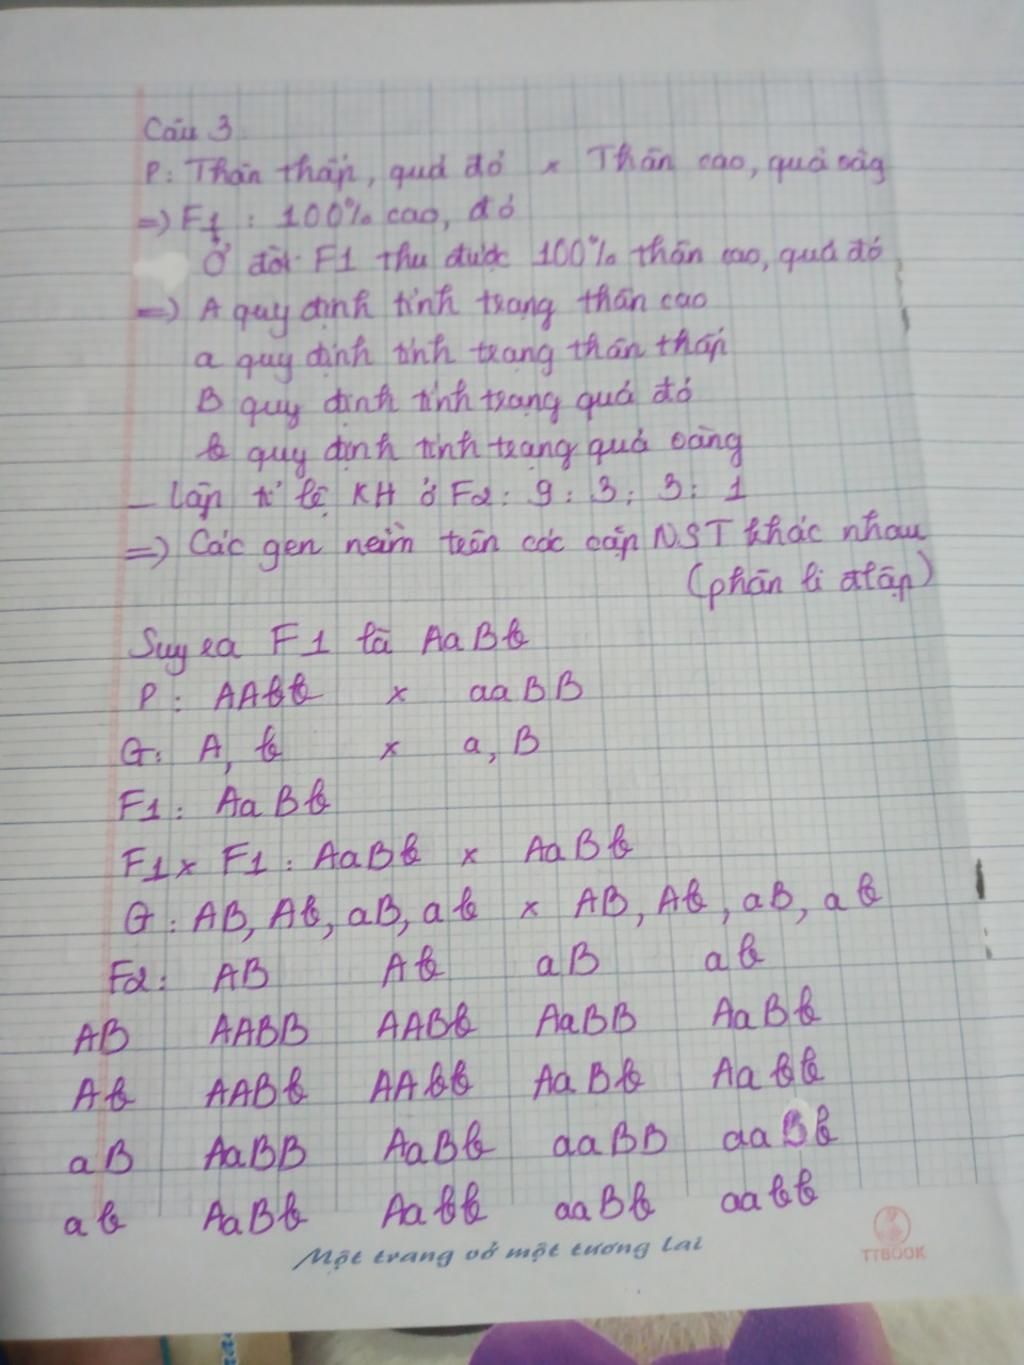 Câu 3
P: Thân thấp, quả đỏ × Thân cao, quả vàg
=> F1 : 100% cao, đỏ
Ở đời F1 thu được 100% thân cao, quả đỏ
=> A quy định tính trạng thân cao
a quy định tính trạng thân thấp
B quy định tính trạng quả đỏ
b quy định tính trạng quả vàng
- Lập tỉ lệ KH ở F2: 9 : 3 : 3 : 1
=> Các gen nằm trên các cặp NST khác nhau
(phân li đlập)
Suy ra F1 là AaBb
P : AAbb × aaBB
G: A, b × a, B
F1 : AaBb
F1 × F1 : AaBb × AaBb
G : AB, Ab, aB, ab × AB, Ab, aB, ab
F2 : AB Ab aB ab
AB AABB AABb AaBB AaBb
Ab AABb AAbb AaBb Aabb
aB AaBB AaBb aaBB aaBb
ab AaBb Aabb aaBb aabb
Một trang vở một tương lai
TTBOOK